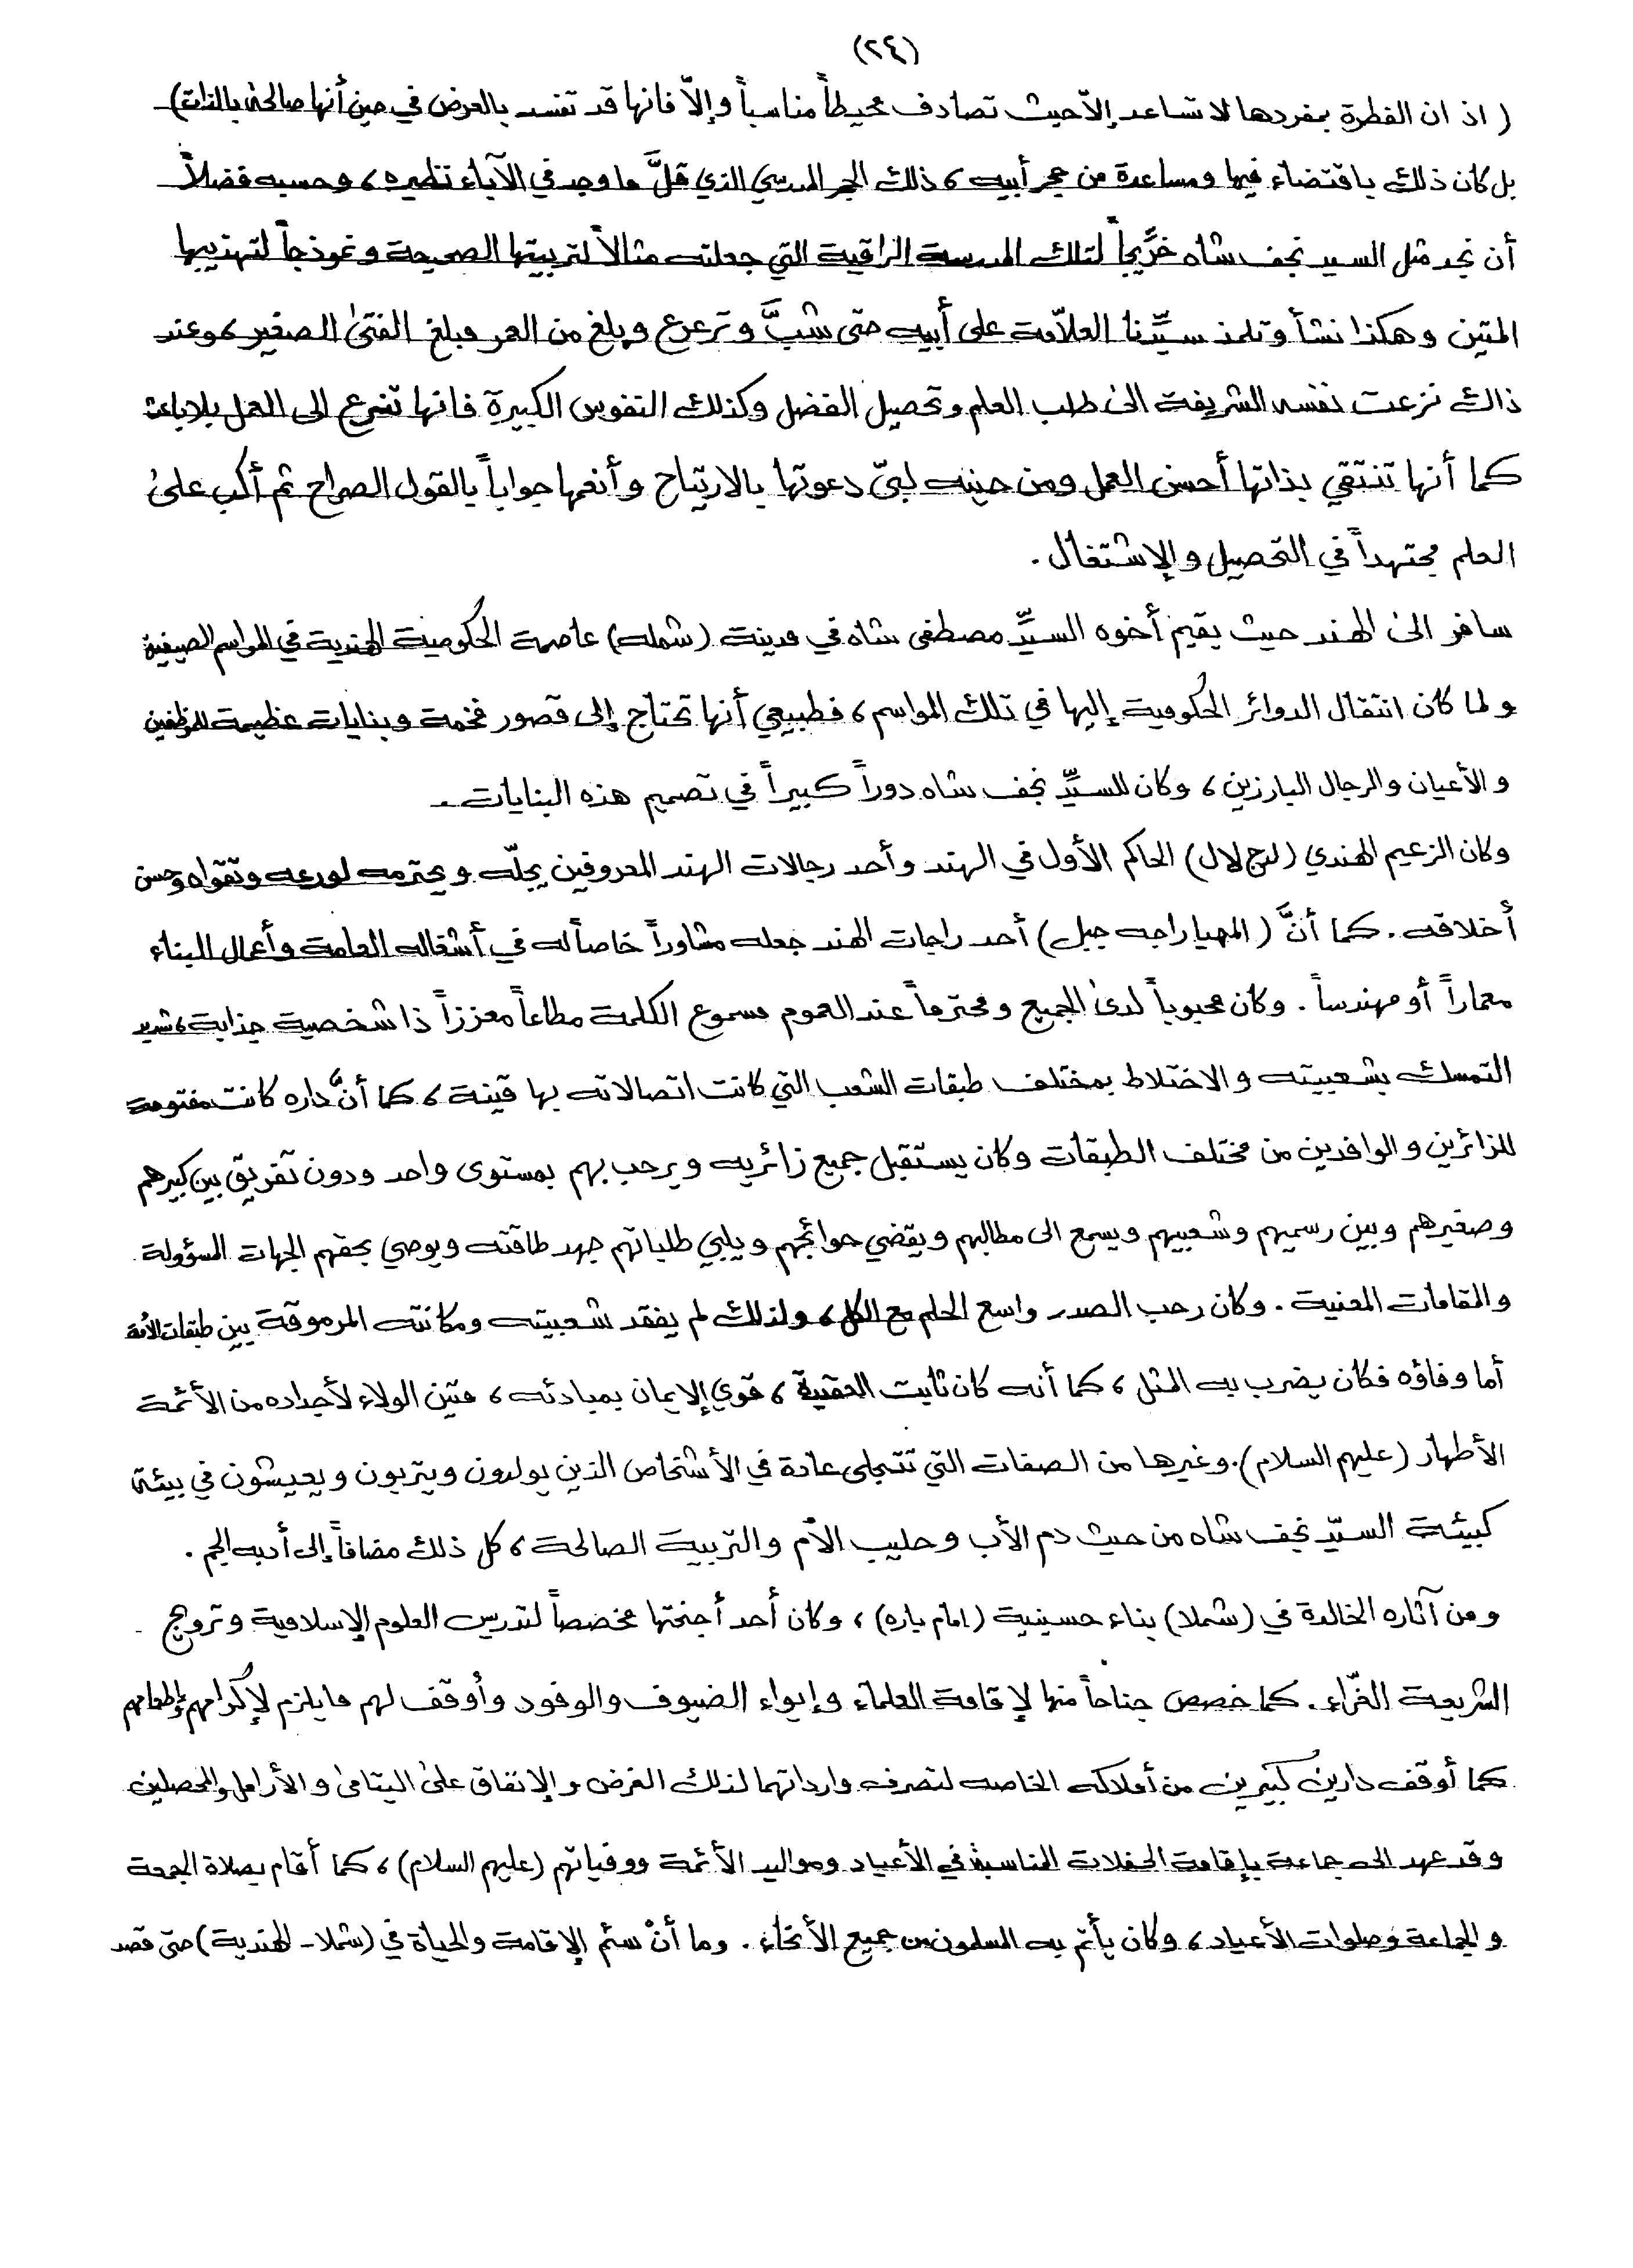 (٢٤)
( اذ ان الفطرة بمفردها لا تساعد إلاّ حيث تصادف محيطاً مناسباً وإلاّ فانها قد تفسد بالعرض في حين أنها صالحة بالذات)
بل كان ذلك باقتضاء فيها ومساعدة من حجر أبيه ، ذلك الحجر المدرسي الذي قلَّ ما وجد في الآباء نظيره ، وحسبه فضلاً
أن نجد مثل السيد نجف شاه خرِّيجاً لتلك المدرسة الراقية التي جعلته مثالاً لتربيتها الصحيحة ونموذجاً لتهذيبها
المتين وهكذا نشأ وتلمذ سيِّدنا العلاّمة على أبيه حتى شبَّ وترعرع وبلغ من العمر مبلغ الفتىٰ الصغير ، وعند
ذالك نزعت نفسه الشريفة الىٰ طلب العلم وتحصيل الفضل وكذلك النفوس الكبيرة فانها تنزع الى العمل بلا باعث
كما أنها تنتقي بذاتها أحسن العمل ومن حينه لبىّ دعوتها بالارتياح وأنعمها جواباً بالقول الصراح ثم أكب علىٰ
العلم مجتهداً في التحصيل والإشتغال .
سافر الىٰ الهند حيث يقيم أخوه السيِّد مصطفى شاه في مدينة (شمله) عاصمة الحكومية الهندية في المواسم الصيفية
و لما كان انتقال الدوائر الحُكومية إليها في تلك المواسم ، فطبيعي أنها تحتاج إلى قصور فخمة وبنايات عظيمة للموظفين
و الأعيان والرجال البارزين ، وكان للسيِّد نجف شاه دوراً كبيراً في تصميم هذه البنايات .
وكان الزعيم الهندي (لنج لال) الحاكم الأول في الهند وأحد رجالات الهند المعروفين يجلّه ويحترمه لورعه وتقواه وحسن
أخلاقه . كما أنَّ (المهياراجه جبل) أحد راجات الهند جعله مشاوراً خاصاً له في أشغاله العامة وأعمال البناء
معماراً أو مهندساً . وكان محبوباً لدىٰ الجميع ومحترماً عند العموم مسموع الكلمة مطاعاً معززاً ذا شخصية جذابة ، شديد
التمسك بشعبيته والاختلاط بمختلف طبقات الشعب التي كانت اتصالاته بها متينة ، كما أنَّ داره كانت مفتوحة
للزائرين والوافدين من مختلف الطبقات وكان يستقبل جميع زائريه ويرحب بهم بمستوى واحد ودون تفريق بين كبيرهم
وصغيرهم وبين رسميهم وشعبيهم ويسمع الى مطالبهم ويقضي حوائجهم ويلبي طلباتهم جهد طاقته ويوصي بحقهم الجهات المسؤولة
والمقامات المعنية . وكان رحب الصدر واسع الحلم مع الكل ، ولذلك لم يفقد شعبيته ومكانته المرموقة بين طبقات الأمة
أما وفاؤه فكان يضرب به المثل ، كما أنه كان ثابت العقيدة ، قوي الإيمان بمبادئه ، متين الولاء لأجداده من الأئمة
الأطهار (عليهم السلام). وغيرها من الصفات التي تتجلى عادة في الأشخاص الذين يولدون ويتربون ويعيشون في بيئة
كبيئة السيّد نجف شاه من حيث دم الأب وحليب الأم والتربية الصالحة ، كل ذلك مضافاً إلى أدبه الجم .
ومن آثاره الخالدة في (شملا) بناء حسينية (امام باره) ، وكان أحد أجنحتها مخصصاً لتدريس العلوم الإسلامية وترويج
الشريعة الغرّاء . كما خصص جناحاً منها لإقامة العلماء وإيواء الضيوف والوفود وأوقف لهم ما يلزم لإكرامهم وإطعامهم
كما أوقف دارين كبيرين من أملاكه الخاصه لتصرف وارداتهما لذلك الغرض والإنفاق علىٰ اليتامىٰ والأرامل والمحصلين
وقد عهد الى جماعة بإقامة الحفلات المناسبة في الأعياد ومواليد الأئمة ووفياتهم (عليهم السلام) ، كما أقام بصلاة الجمعة
والجماعة وصلوات الأعياد ، وكان يأتم به المسلمون من جميع الأنحاء . وما أنْ سئم الإقامة والحياة في (شملا - الهندية) حتى قصد